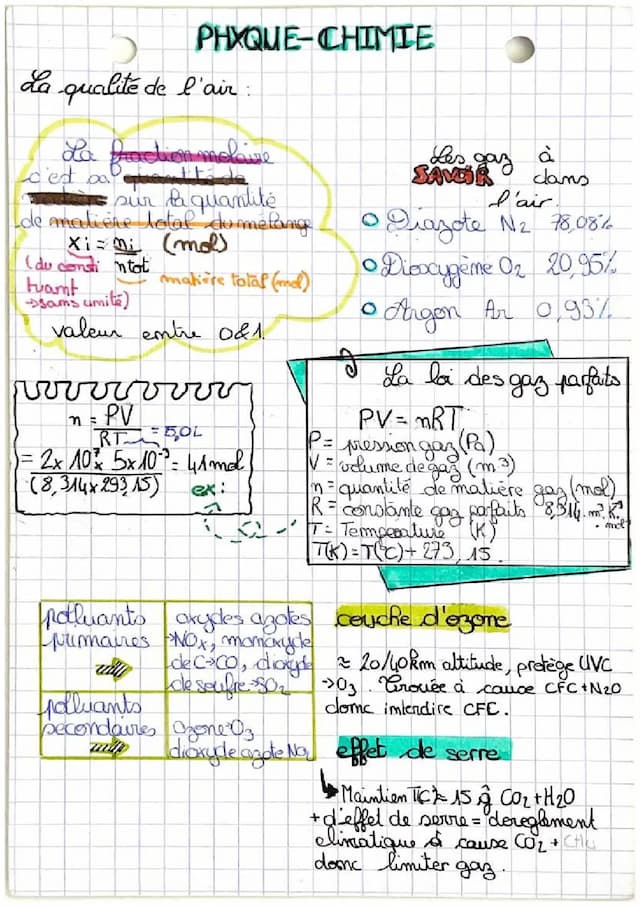 PHXQUE-CHIMIE
La qualité de l'air :
La fraction molaire
c'est sa quantité de
matière sur la quantité
de matière total du mélange
xi = ni (mol)
ntot
(du consti
tuant
→ sans unité)
matière total (mol)
valeur entre 0&1.
Les gaz à
SAVOIR dans
l'air.
Diazote N2 78,08%
Dioxygène O2 20,95%
Argon Ar 0,93%
n = PV
RT = 5,0L
= 2x 10⁷ x 5x10⁻³ = 41mol
(8,314x293,15)
ex:
La loi des gaz parfaits
PV = nRT
P = pression gaz (Pa)
V = volume de gaz (m³)
n = quantité de matière gaz (mol)
R = constante gaz parfaits
T = Temperature (K)
T(K) = T(°C) + 273,15.
polluants
primaires
oxydes azotes
→ NOx, monoxyde
de C → CO, dioxyde
de soufre → SO2
polluants
secondaires
Ozone O3
dioxyde azote NO2
couche d'ozone
≈ 20/40km altitude, protège UVC
→ O3. Trouée à cause CFC + N2O
donc interdire CFC.
effet de serre
Maintien T°C ≈ 15 CO2 + H2O
+ d'effet de serre = dereglement
climatique à cause CO2 + CH4
donc limiter gaz.